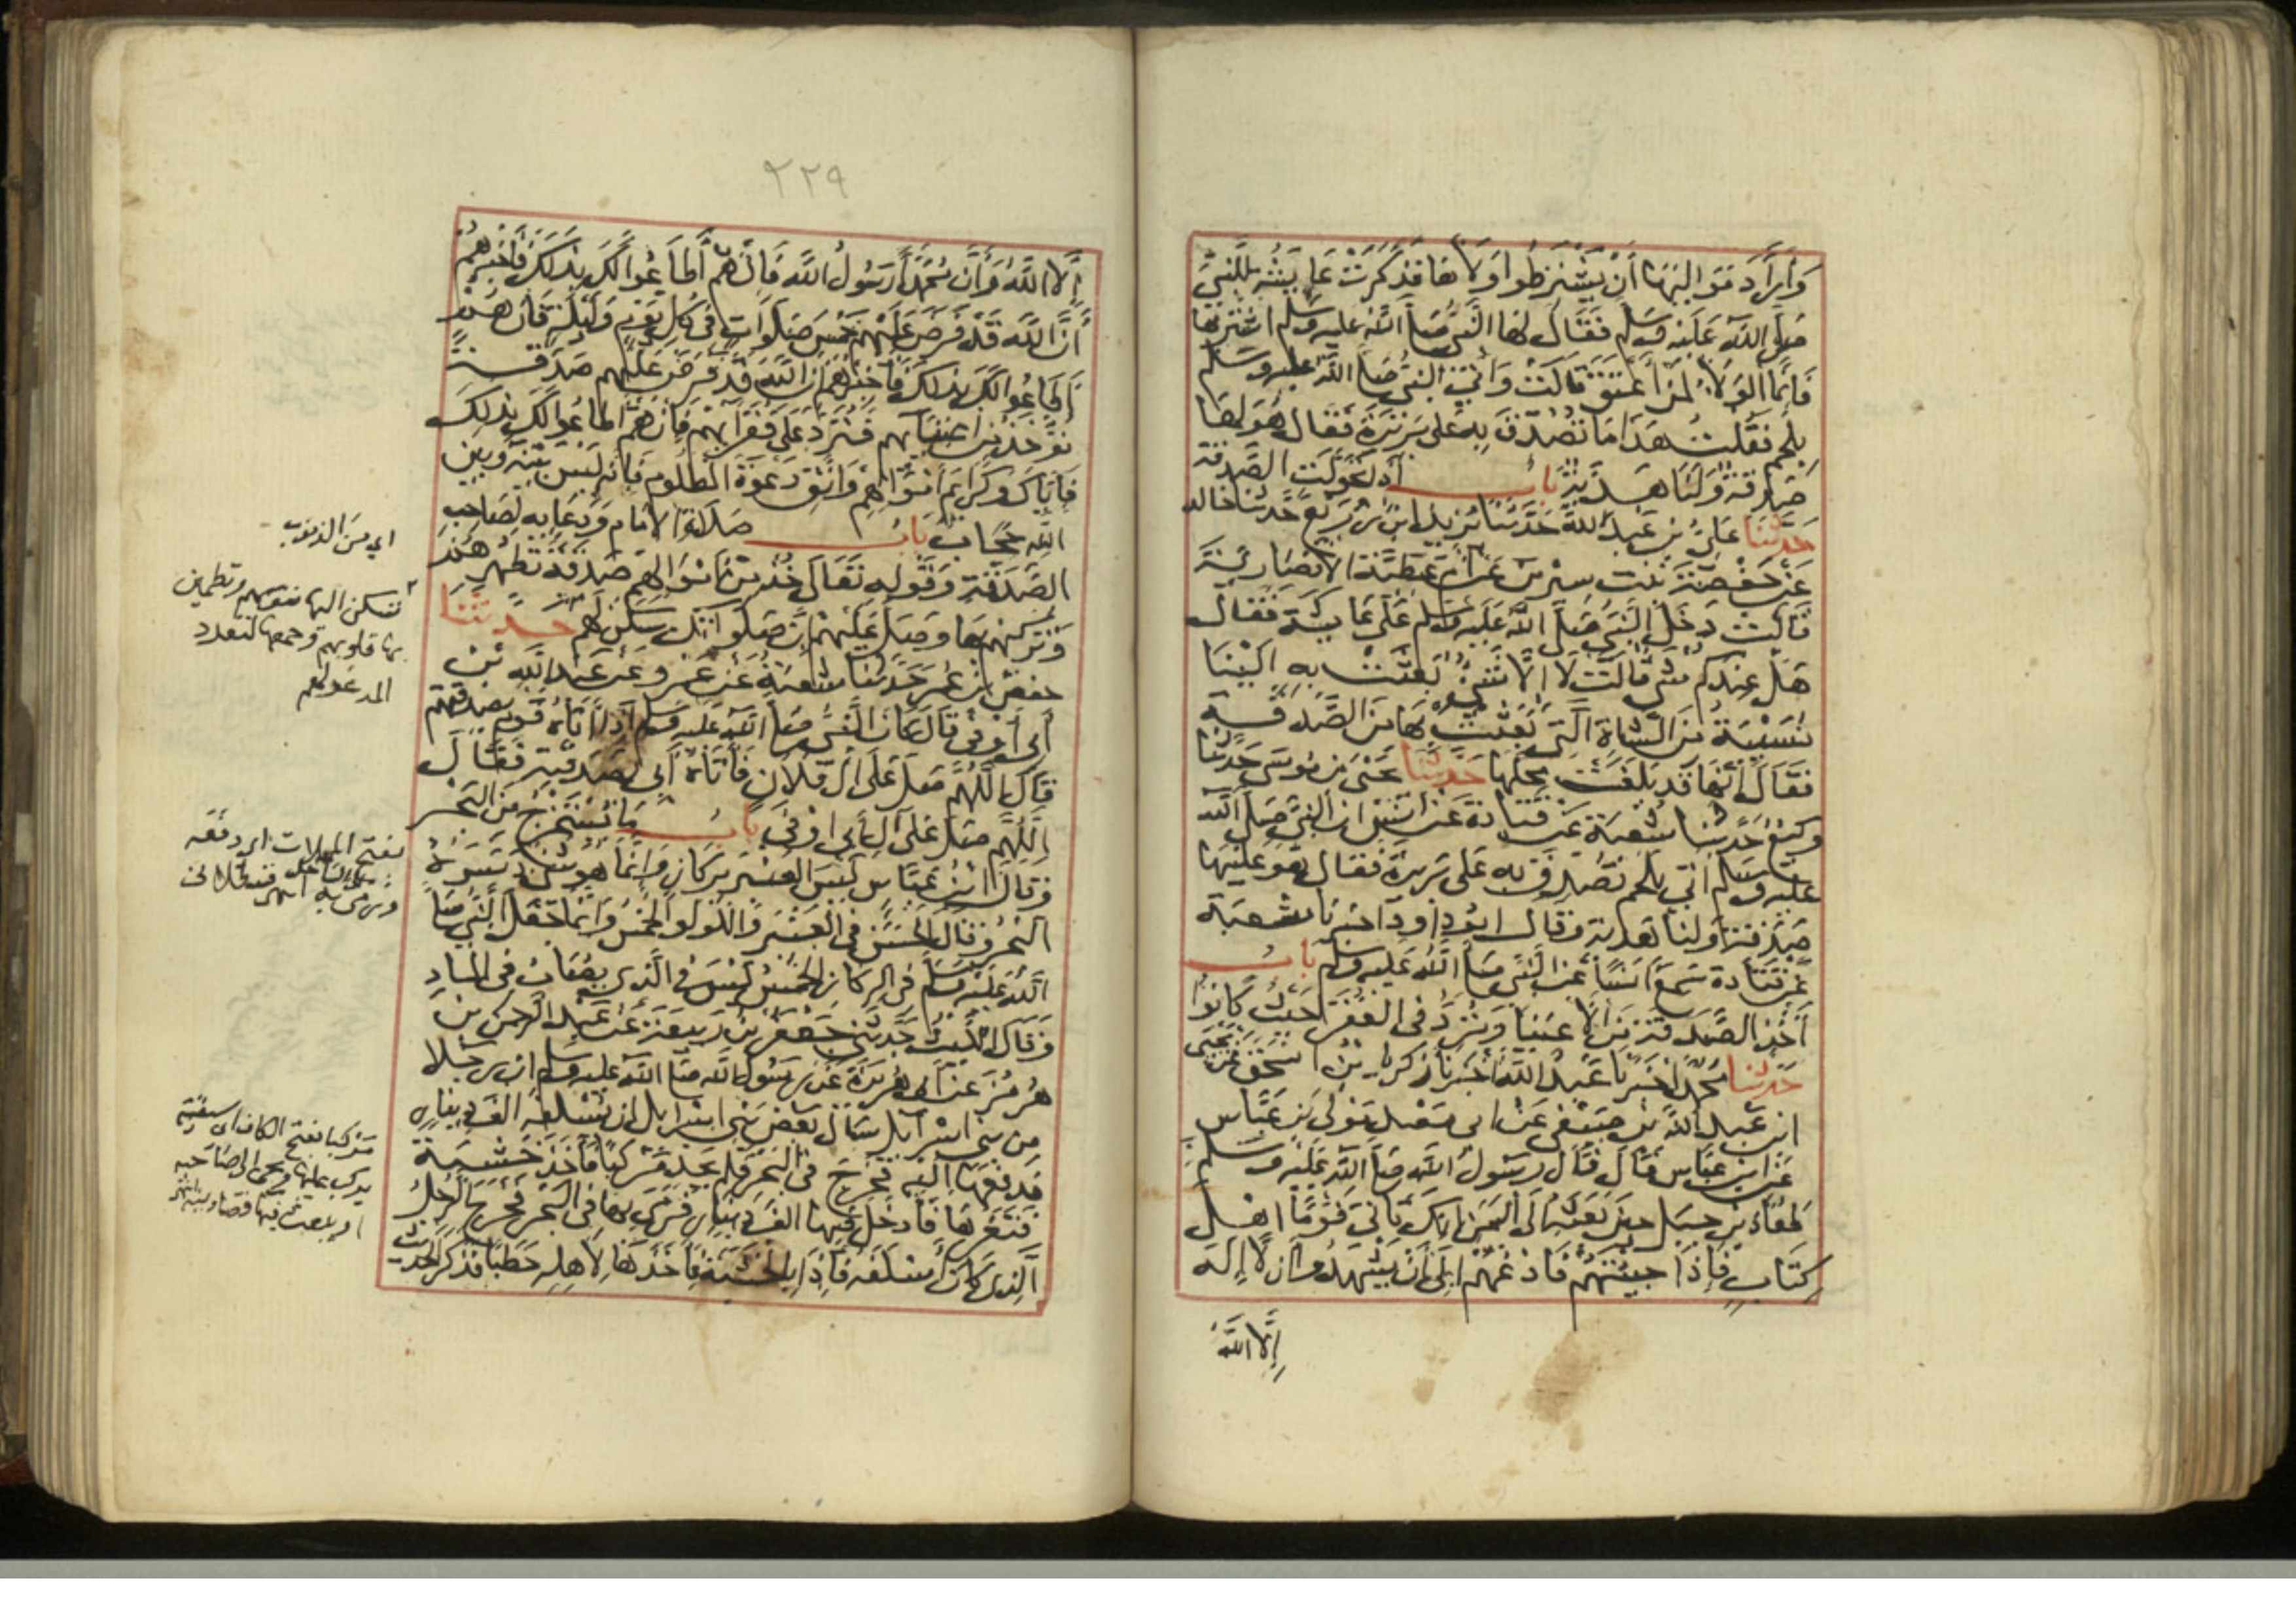 وَأَرَادَ مَوَالِيهَا أَنْ يَشْتَرِطُوا وَلَاءَهَا فَذَكَرَتْ عَايِشَةُ لِلنَّبِيِّ
صَلَّى اللَّهُ عَلَيْهِ وَسَلَّمَ فَقَالَ لَهَا النَّبِيُّ صَلَّى اللَّهُ عَلَيْهِ وَسَلَّمَ اشْتَرِيهَا
فَإِنَّمَا الْوَلَاءُ لِمَنْ أَعْتَقَ قَالَتْ وَأُتِيَ النَّبِيُّ صَلَّى اللَّهُ عَلَيْهِ وَسَلَّمَ
بِلَحْمٍ فَقُلْتُ هَذَا مَا تُصُدِّقَ بِهِ عَلَى بَرِيرَةَ فَقَالَ هُوَ لَهَا
صَدَقَةٌ وَلَنَا هَدِيَّةٌ بَابُ إِذَا تَحَوَّلَتِ الصَّدَقَةُ
حَدَّثَنَا عَلِيُّ بْنُ عَبْدِ اللَّهِ حَدَّثَنَا يَزِيدُ ابْنُ زُرَيْعٍ حَدَّثَنَا خَالِد
عَنْ حَفْصَةَ بِنْتِ سِيرِينَ عَنْ أُمِّ عَطِيَّةَ الْأَنْصَارِيَّةِ
قَالَتْ دَخَلَ النَّبِيُّ صَلَّى اللَّهُ عَلَيْهِ وَسَلَّمَ عَلَى عَايِشَةَ فَقَالَ
هَلْ عِنْدَكُمْ شَيْءٌ قَالَتْ لَا إِلَّا شَيْءٌ بَعَثَتْ بِهِ إِلَيْنَا
نُسَيْبَةُ مِنَ الشَّاةِ الَّتِي بَعَثْتَ بِهَا مِنَ الصَّدَقَةِ
فَقَالَ إِنَّهَا قَدْ بَلَغَتْ مَحِلَّهَا حَدَّثَنَا يَحْيَى بْنُ مُوسَى حَدَّثَنَا
وَكِيعٌ حَدَّثَنَا شُعْبَةُ عَنْ قَتَادَةَ عَنْ أَنَسٍ أَنَّ النَّبِيَّ صَلَّى اللَّهُ
عَلَيْهِ وَسَلَّمَ أُتِيَ بِلَحْمٍ تُصُدِّقَ بِهِ عَلَى بَرِيرَةَ فَقَالَ هُوَ عَلَيْهَا
صَدَقَةٌ وَلَنَا هَدِيَّةٌ وَقَالَ أَبُو دَاوُدَ أَخْبَرَنَا شُعْبَةُ
عَنْ قَتَادَةَ سَمِعَ أَنَسًا عَنِ النَّبِيِّ صَلَّى اللَّهُ عَلَيْهِ وَسَلَّمَ بَابُ
أَخْذِ الصَّدَقَةِ مِنَ الْأَغْنِيَا وَتُرَدُّ فِي الْفُقَرَا حَيْثُ كَانُوا
حَدَّثَنَا مُحَمَّدٌ أَخْبَرَنَا عَبْدُ اللَّهِ أَخْبَرَنَا زَكَرِيَّا بْنُ اسْحَقَ عَنْ يَحْيَى
ابْنِ عَبْدِ اللَّهِ بْنِ صَيْفِيٍّ عَنْ أَبِي مَعْبَدٍ مَوْلَى ابْنِ عَبَّاسٍ
عَنِ ابْنِ عَبَّاسٍ قَالَ قَالَ رَسُولُ اللَّهِ صَلَّى اللَّهُ عَلَيْهِ وَسَلَّمَ
لِمُعَاذِ بْنِ جَبَلٍ حِينَ بَعَثَهُ إِلَى الْيَمَنِ إِنَّكَ تَأْتِي قَوْمًا أَهْلَ
كِتَابٍ فَإِذَا جِئْتَهُمْ فَادْعُهُمْ إِلَى أَنْ يَشْهَدُوا أَنْ لَا إِلَهَ
إِلَّا اللَّهُ
٢٢٩
إِلَّا اللَّهُ وَأَنَّ مُحَمَّدًا رَسُولُ اللَّهِ فَإِنْ هُمْ أَطَاعُوا لَكَ بِذَلِكَ فَأَخْبِرْهُمْ
أَنَّ اللَّهَ قَدْ فَرَضَ عَلَيْهِمْ خَمْسَ صَلَوَاتٍ فِي كُلِّ يَوْمٍ وَلَيْلَةٍ فَإِنْ هُمْ
أَطَاعُوا لَكَ بِذَلِكَ فَأَخْبِرْهُمْ أَنَّ اللَّهَ قَدْ فَرَضَ عَلَيْهِمْ صَدَقَةً
تُؤْخَذُ مِنْ أَغْنِيَائِهِمْ فَتُرَدُّ عَلَى فُقَرَائِهِمْ فَإِنْ هُمْ أَطَاعُوا لَكَ بِذَلِكَ
فَإِيَّاكَ وَكَرَائِمَ أَمْوَالِهِمْ وَاتَّقِ دَعْوَةَ الْمَظْلُومِ فَإِنَّهُ لَيْسَ بَيْنَهُ وَبَيْنَ
اللَّهِ حِجَابٌ بَابُ صَلَاةِ الْإِمَامِ وَدُعَائِهِ لِصَاحِبِ
الصَّدَقَةِ وَقَوْلِهِ تَعَالَى خُذْ مِنْ أَمْوَالِهِمْ صَدَقَةً تُطَهِّرُهُمْ
وَتُزَكِّيهِمْ بِهَا وَصَلِّ عَلَيْهِمْ إِنَّ صَلَوَاتِكَ سَكَنٌ لَهُمْ حَدَّثَنَا
حَفْصُ بْنُ عُمَرَ حَدَّثَنَا شُعْبَةُ عَنْ عَمْرٍو عَنْ عَبْدِ اللَّهِ بْنِ
أَبِي أَوْفَى قَالَ كَانَ النَّبِيُّ صَلَّى اللَّهُ عَلَيْهِ وَسَلَّمَ إِذَا أَتَاهُ قَوْمٌ بِصَدَقَتِهِمْ
قَالَ اللَّهُمَّ صَلِّ عَلَى آلِ فُلَانٍ فَأَتَاهُ أَبِي بِصَدَقَتِهِ فَقَالَ
اللَّهُمَّ صَلِّ عَلَى آلِ أَبِي أَوْفَى بَابُ مَا يُسْتَخْرَجُ مِنَ الْبَحْرِ
وَقَالَ ابْنُ عَبَّاسٍ لَيْسَ الْعَنْبَرُ بِرِكَازٍ وَإِنَّمَا هُوَ شَيْءٌ دَسَرَهُ
الْبَحْرُ وَقَالَ الْحَسَنُ فِي الْعَنْبَرِ وَاللُّؤْلُؤِ الْخُمُسُ وَإِنَّمَا جَعَلَ النَّبِيُّ صَلَّى
اللَّهُ عَلَيْهِ وَسَلَّمَ فِي الرِّكَازِ الْخُمُسَ لَيْسَ فِي الَّذِي يُصَابُ فِي الْمَاءِ
وَقَالَ اللَّيْثُ حَدَّثَنِي جَعْفَرُ بْنُ رَبِيعَةَ عَنْ عَبْدِ الرَّحْمَنِ بْنِ
هُرْمُزَ عَنْ أَبِي هُرَيْرَةَ عَنْ رَسُولِ اللَّهِ صَلَّى اللَّهُ عَلَيْهِ وَسَلَّمَ أَنَّ رَجُلًا
مِنْ بَنِي إِسْرَائِيلَ سَأَلَ بَعْضَ بَنِي إِسْرَائِيلَ أَنْ يُسْلِفَهُ أَلْفَ دِينَارٍ
فَدَفَعَهَا إِلَيْهِ فَخَرَجَ فِي الْبَحْرِ فَلَمْ يَجِدْ مَرْكَبًا فَأَخَذَ خَشَبَةً
فَنَقَرَهَا فَأَدْخَلَ فِيهَا أَلْفَ دِينَارٍ فَرَمَى بِهَا فِي الْبَحْرِ فَخَرَجَ الرَّجُلُ
الَّذِي كَانَ أَسْلَفَهُ فَإِذَا بِالْخَشَبَةِ فَأَخَذَهَا لِأَهْلِهِ حَطَبًا فَذَكَرَ الْحَدِيثَ
اي من الذنوب
تسكن اليها نفوسهم وتطمين
بها قلوبهم وجمعها لتعدد
المدعو لهم
بفتح المهملات اي دفعه
ورمى به
مركبا بفتح الكاف اي سفينة
يركب عليها ويجي الى صاحبه